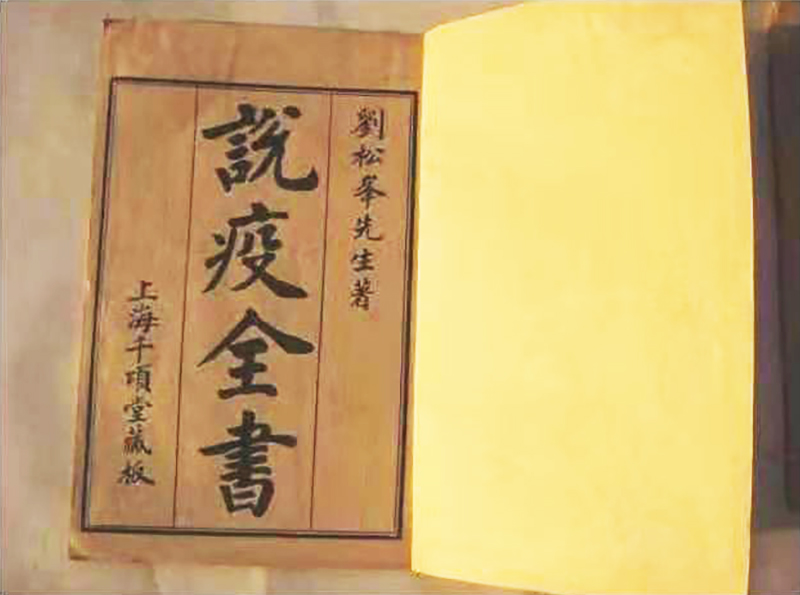 劉松峯先生著
說疫全書
上海千頃堂藏板